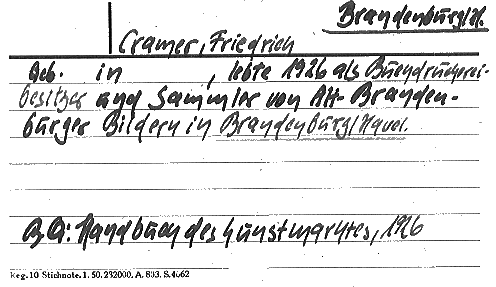 Brandenburg/H.
Cramer, Friedrich
Geb. in , lebte 1926 als Buchdruckerei-
besitzer und Sammler von Alt-Branden-
burger Bildern in Brandenburg/Havel.
BQ: Handbuch des Kunstmarktes, 1926
Reg. 10 Stichnote. 1. 50. 232000. A. 893. S. 4662